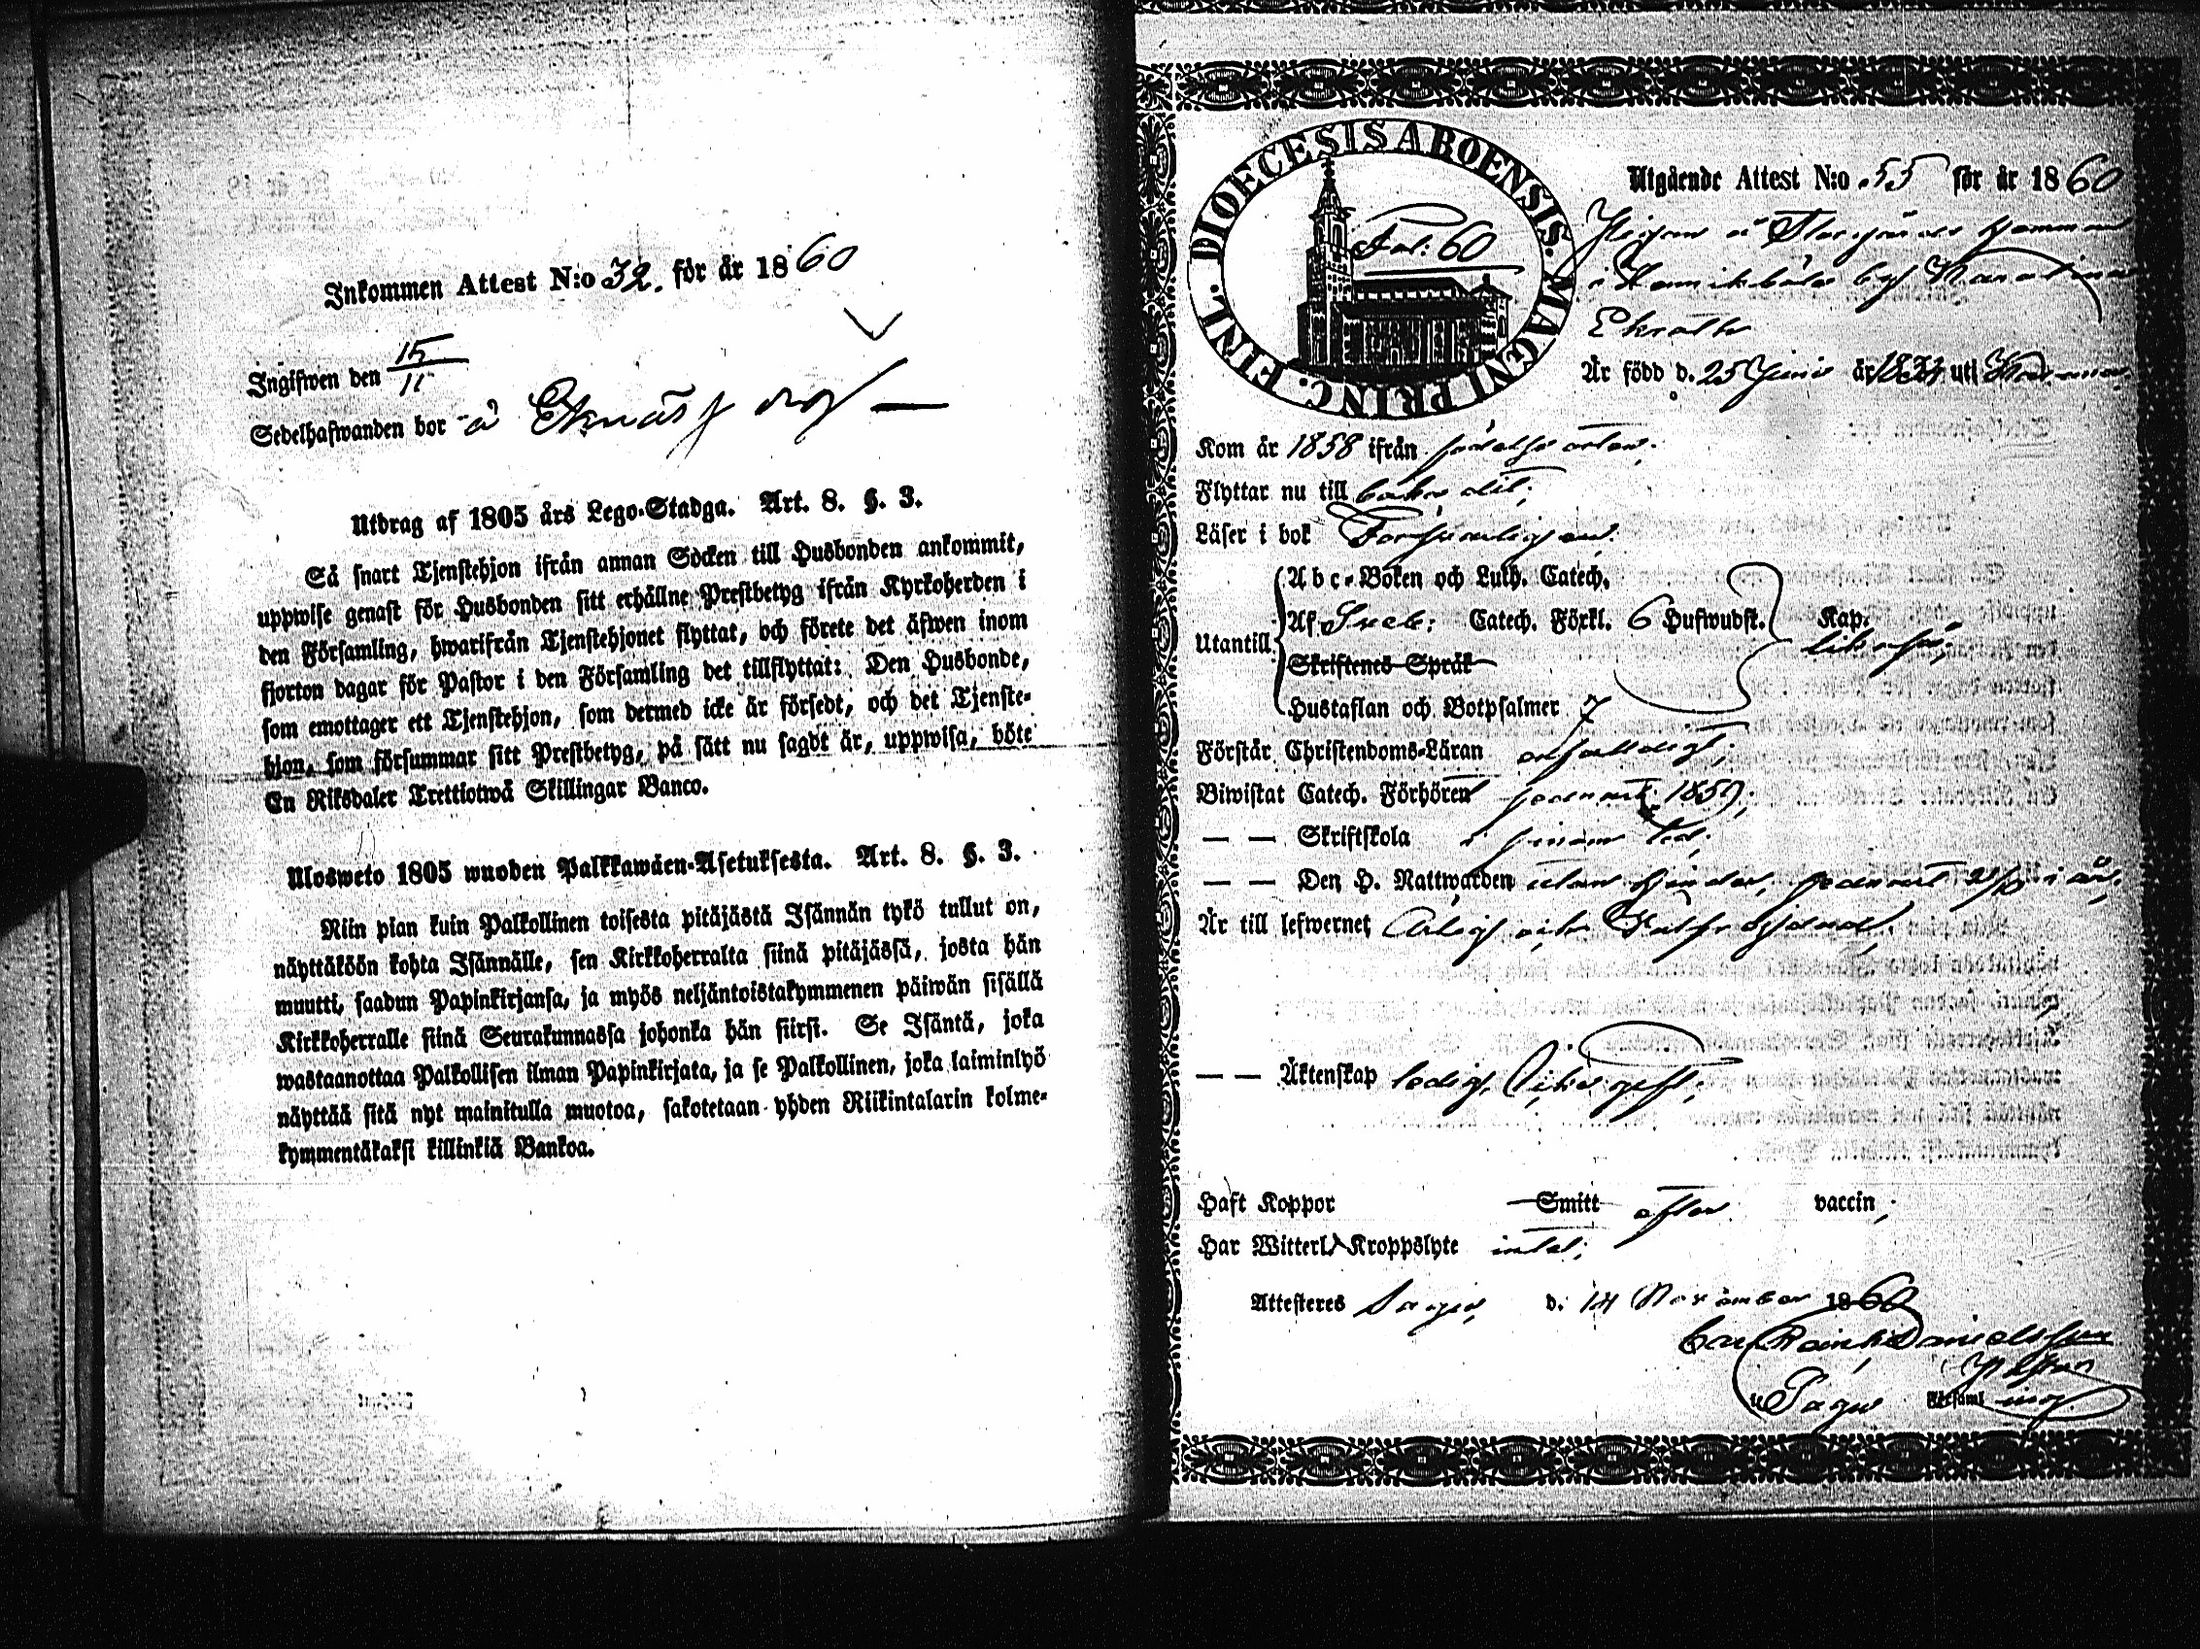 Inkommen Attest N:o 32. för år 1860
Ingifwen den 15/11
Sedelhafwanden bor å Eknäs
Utdrag af 1805 års Lego-Stadga. Art. 8. §. 3.
Så snart Tjenstehjon ifrån annan Socken till Husbonden ankommit,
uppwise genast för Husbonden sitt erhållne Prestbetyg ifrån Kyrkoherden i
den Församling, hwarifrån Tjenstehjonet flyttat, och förete det äfwen inom
fjorton dagar för Pastor i den Församling det tillflyttat: Den Husbonde,
som emottager ett Tjenstehjon, som dermed icke är försedt, och det Tjenste-
hjon, som försummar sitt Prestbetyg, på sätt nu sagdt är, uppwisa, böte
En Riksdaler Trettiotwå Skillingar Banco.
Ulosweto 1805 wuoden Palkkawäen-Asetuksesta. Art. 8. §. 3.
Niin pian kuin Palkollinen toisesta pitäjästä Isännän tykö tullut on,
näyttäköön kohta Isännälle, sen Kirkkoherralta siinä pitäjässä, josta hän
muutti, saadun Papinkirjansa, ja myös neljäntoistakymmenen päiwän sisällä
Kirkkoherralle siinä Seurakunnassa johonka hän siirsi. Se Isäntä, joka
wastaanottaa Palkollisen ilman Papinkirjata, ja se Palkollinen, joka laiminlyö
näyttää sitä nyt mainitulla muotoa, sakotetaan yhden Riikintalarin kolme-
kymmentäkaksi killinkiä Bankoa.
DIOECESIS ABOENSIS. MAGNI PRINC. FINL.
Fol: 60
Utgående Attest N:o 55 för år 1860
Pigan å hemman
i by
Är född d. 25 Junii år 1834 uti
Kom år 1858 ifrån födelse orten;
Flyttar nu till dit;
Läser i bok Försvarligen;
Utantill
Abc-Boken och Luth. Catech.
Af Sveb: Catech. Förkl. 6 Hufwudst. Kap.
likaså;
Skriftenes Språk
Hustaflan och Botpsalmer 7
Förstår Christendoms-Läran enfaldigt;
Biwistat Catech. Förhören senast 1859;
— — Skriftskola i sinom tid;
— — Den H. Nattwarden utan hinder, senast i år;
Är till lefwernet Ärlig och Välfrejdad;
— — Äktenskap ledig,
Haft Koppor Smitt efter vaccin;
Har Witterl. Kroppslyte intet;
Attesteres Sagu, d. 14 November 1860
Danielsson
i Sagu Församling.